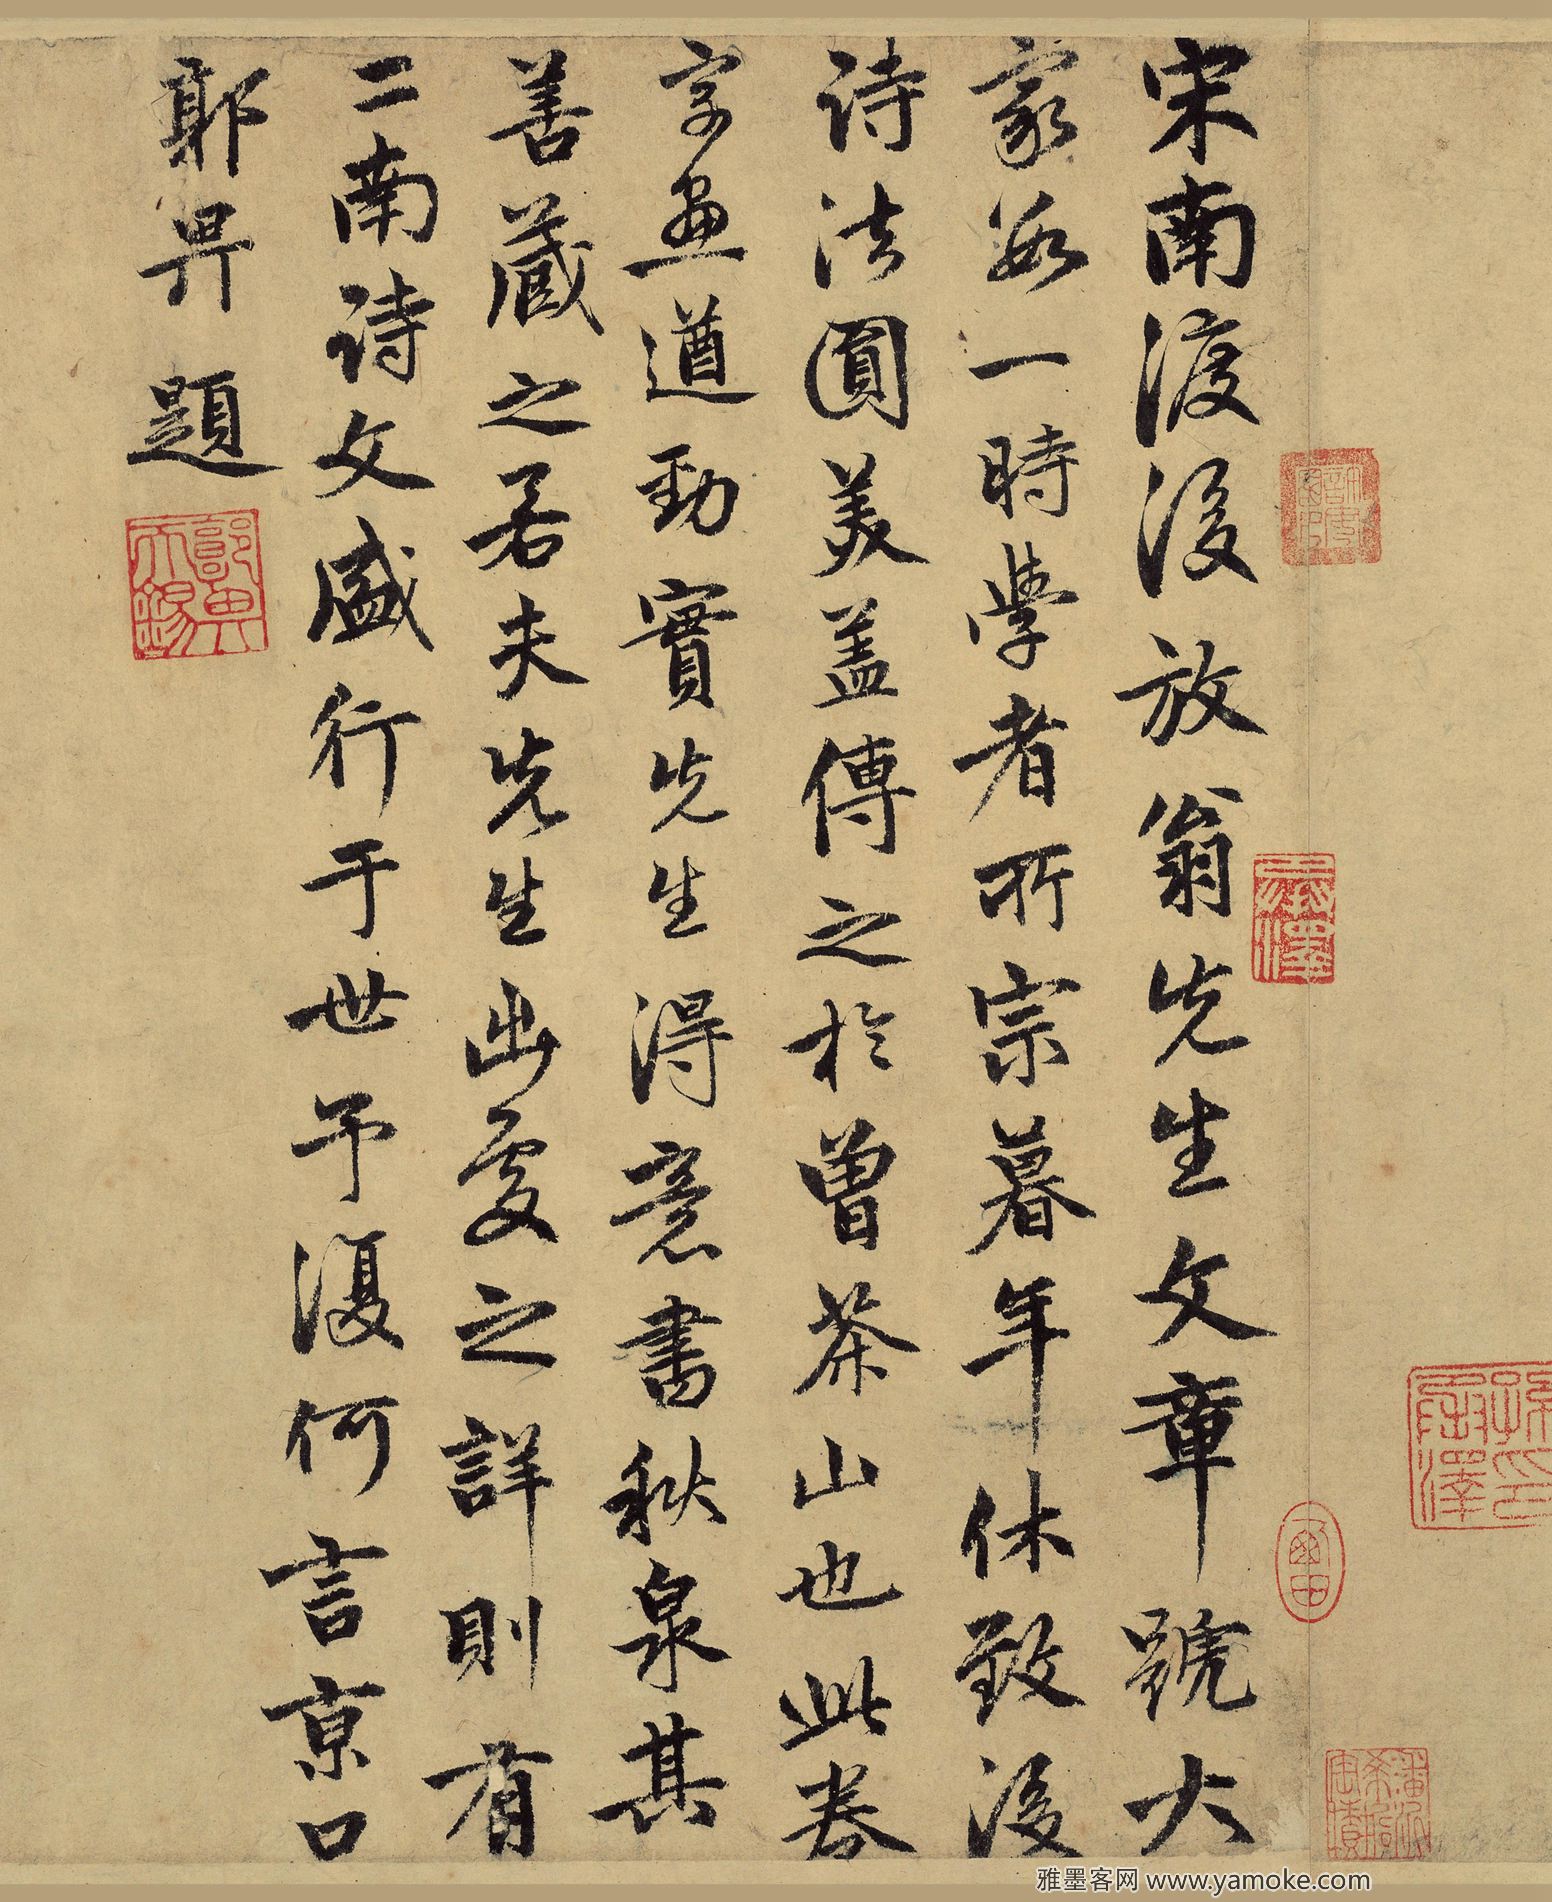 宋南渡後放翁先生文章號大
家數一時學者所宗暮年休致後
詩法圓美蓋傳之於曾茶山也此卷
字畫遒勁實先生得意書秋泉其
善藏之若夫先生出處之詳則有
二南詩文盛行于世予復何言京口
郭畀題
雅墨客网 www.yamoke.com